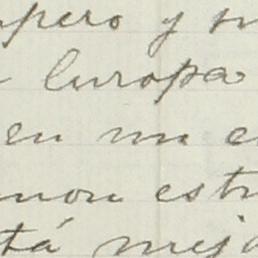 mpero y su
Europa
en un e
mon estr
tá mejo